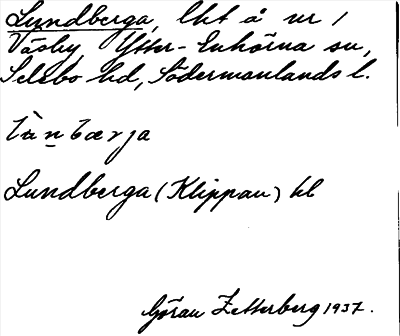 Lundberga, lht å nr 1
Väsby Ytter-Enhörna sn,
Selebo hd, Södermanlands l.
Lundberga (Klippan) hl
Göran Zetterberg 1937.